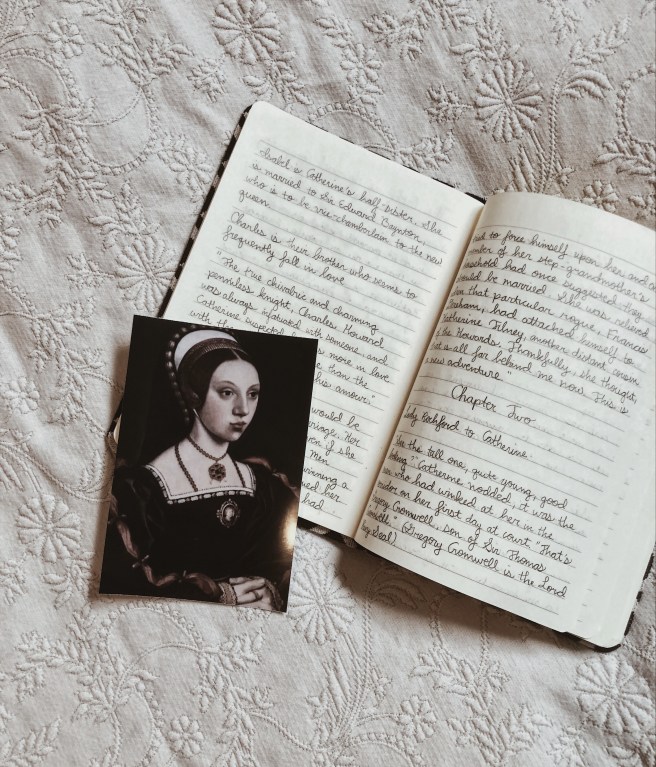 Isabel is Catherine's half-sister. She
is married to Sir Edward Baynton,
who is to be vice-chamberlain to the new
queen.
Charles is their brother who seems to
frequently fall in love.
"The true chivalric and charming
penniless knight, Charles Howard
was always infatuated with someone, and
Catherine suspected
s more in love
with the
e than the
his amour."
would be
Her
if she
Men
winning a
her
had
to force himself upon her and
of her step-grandmother's
household had once suggested they
would be married. She was relieved
when that particular rogue, Francis
Dereham, had attached himself to
Katherine Tilney, another distant cousin
of the Howards. Thankfully, she thought,
that is all far behind me now. This is
a new adventure."
Chapter Two
Lady Rochford to Catherine:
the tall one, quite young, good
Catherine nodded, it was the
who had winked at her in the
on her first day at court. "That's
Gregory Cromwell, son of Sir Thomas
Cromwell." (Gregory Cromwell is the Lord
Seal)